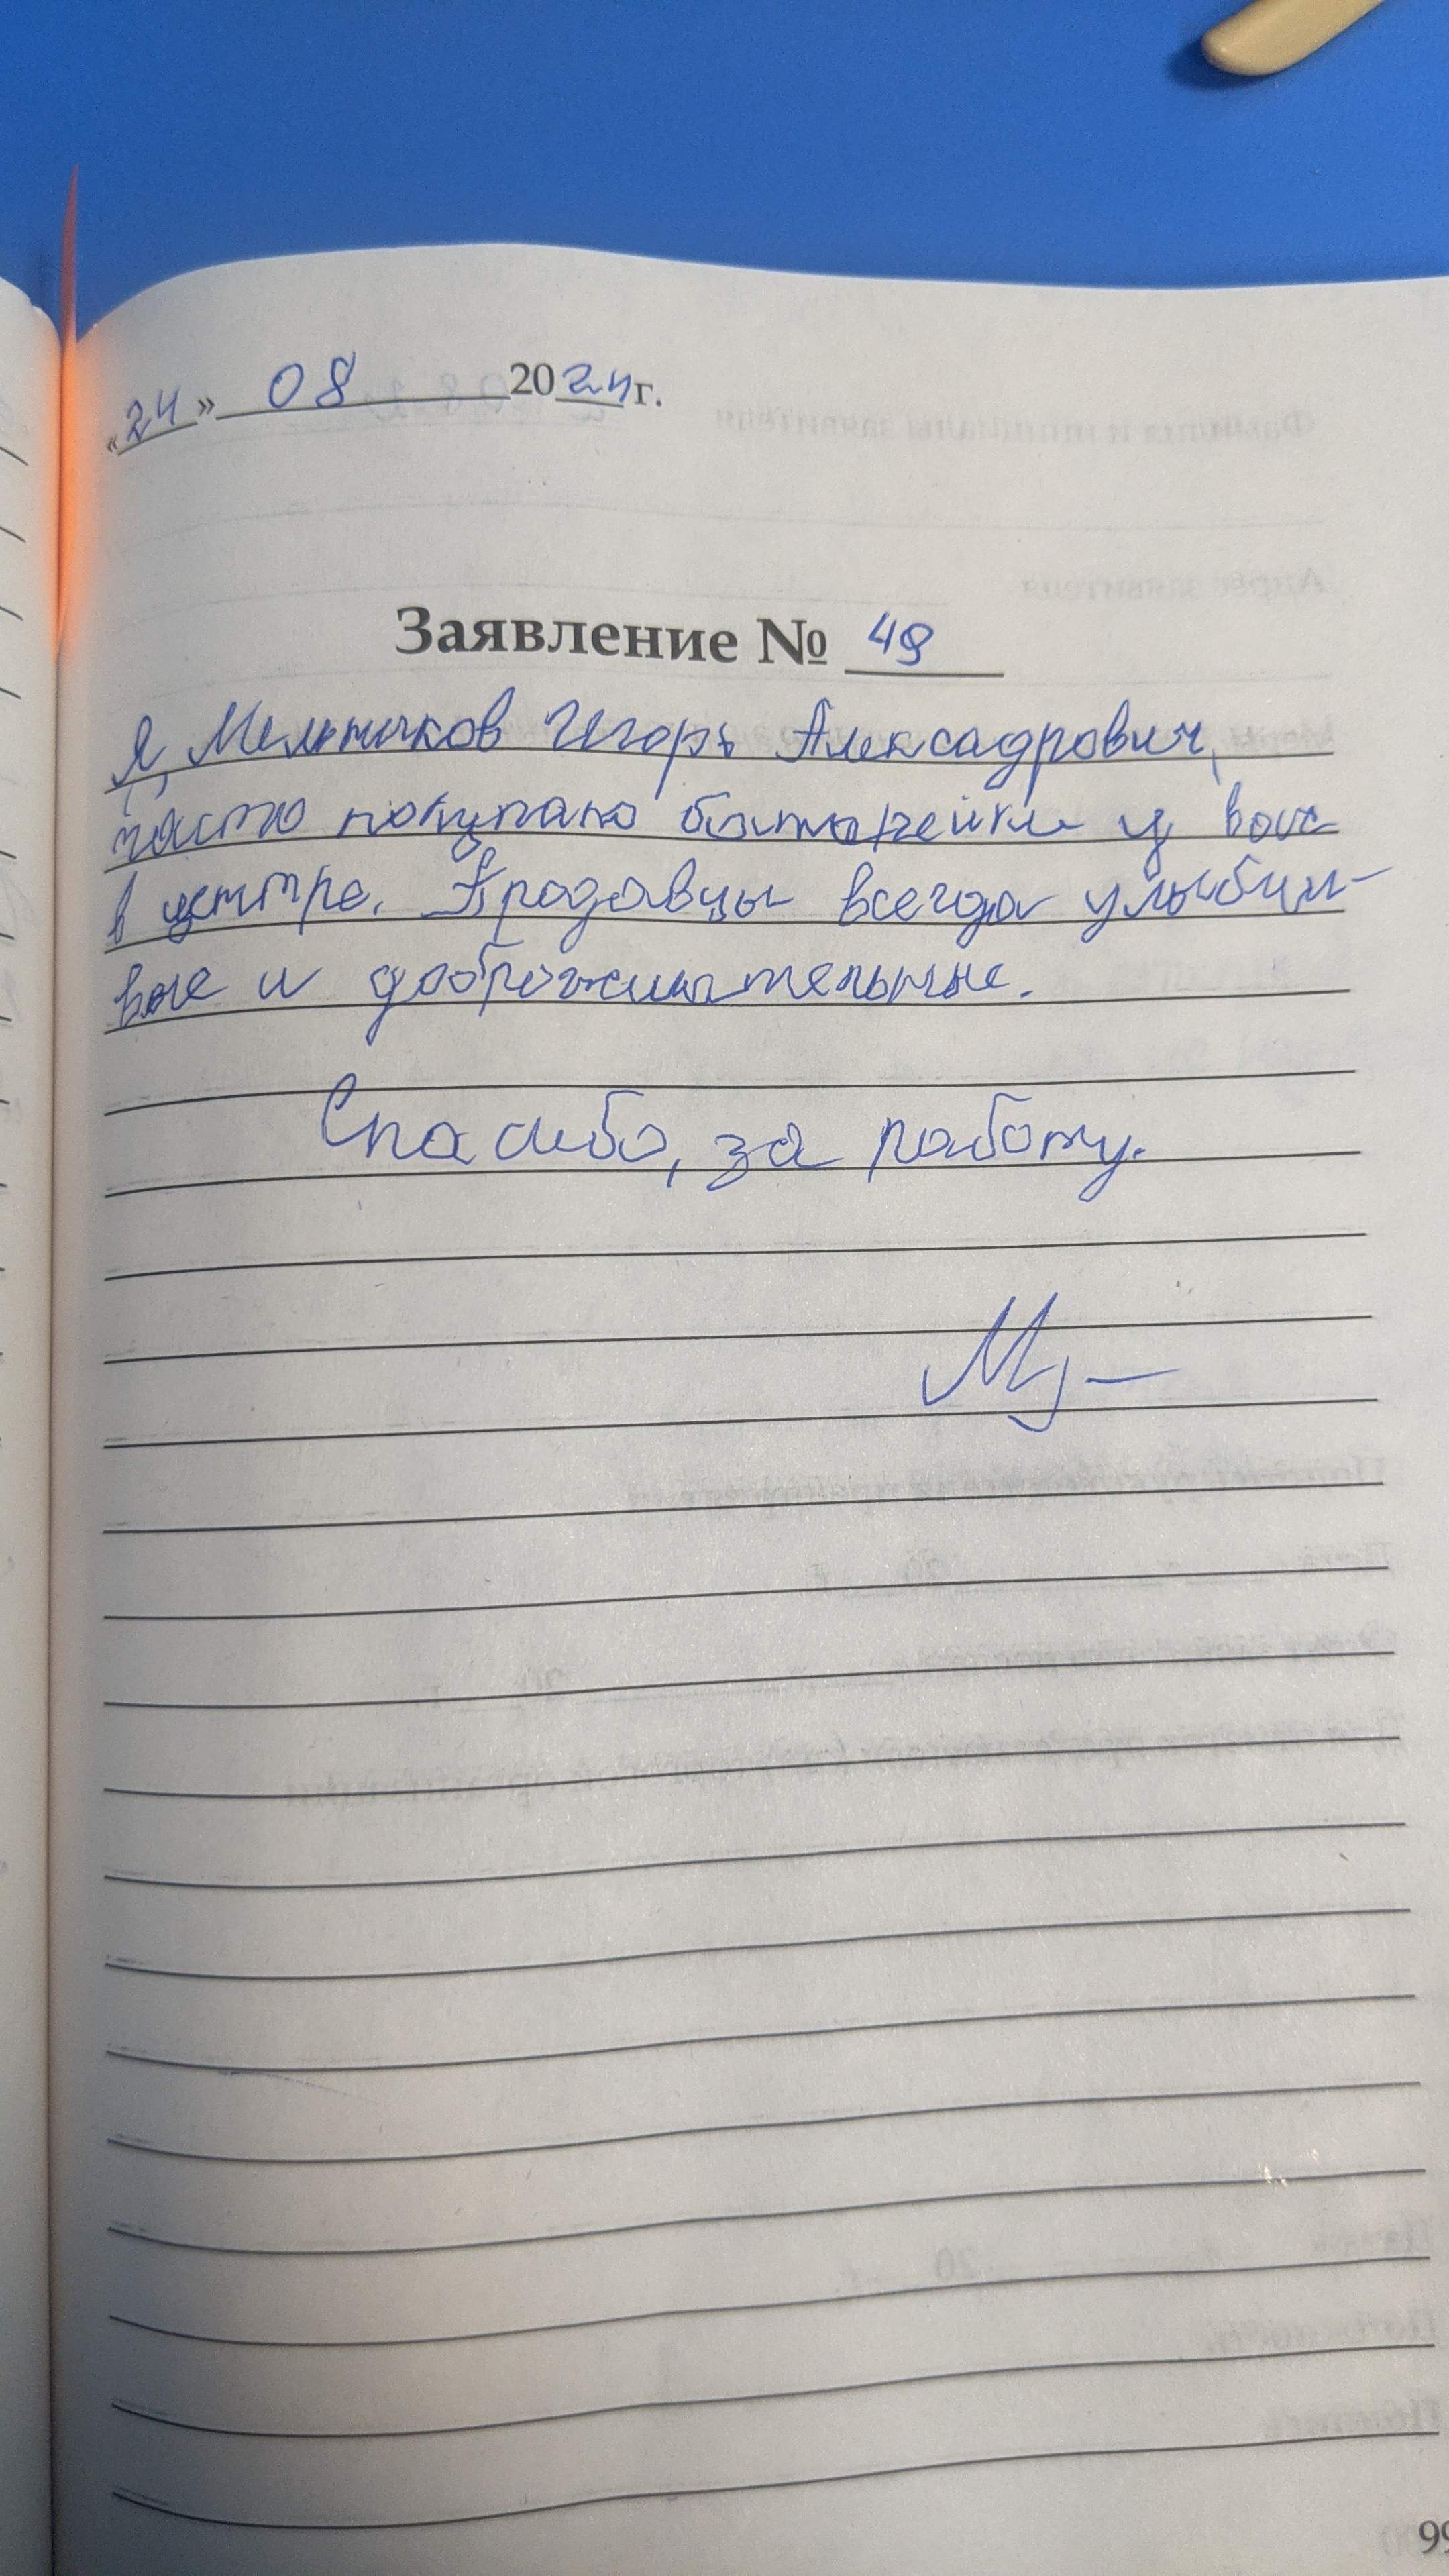 «24» 08 2024г.
Заявление № 49
Я, Мельников Игорь Алексадрович,
часто покупаю батарейки у вас
в центре. Продавцы всегда улыбчи-
вые и доброжилательные.
Спасибо, за работу.
99